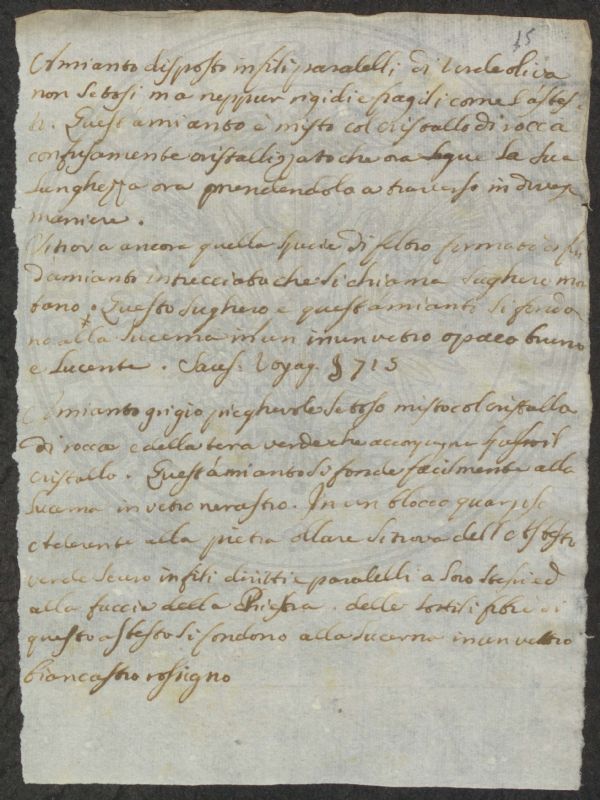 15
Amianto disposto in fili paralelli di verde oliva
non setosi ma neppur rigidi e fragili come l'asbes-
to. Quest'amianto è misto col cristallo di rocca
confusamente cristallizzato che ora segue la sua
lunghezza ora prendendola a traverso in diverse
maniere.
Si trova ancora quella specie di feltro formato di fili
d'amianti intrecciato che si chiama sughero mon
tano. Questo sughero e quest'amianti si fondo
no alla lucerna in un vetro opaco bruno
e lucente. Saus. Voyag. § 715
Amianto grigio pieghevole setoso misto col cristallo
di rocca e della tera verde che accompagna il
cristallo. Quest'amianto si fonde facilmente alla
lucerna in vetro nerastro. In un blocco quarzoso
aderente alla pietra ollare si trova dell'asbesto
verde scuro in fili diritti e paralelli a loro stessi ed
alla faccia della Pietra. delle sottili fibre di
questo asbesto si fondono alla lucerna in un vetro
biancastro rossigno